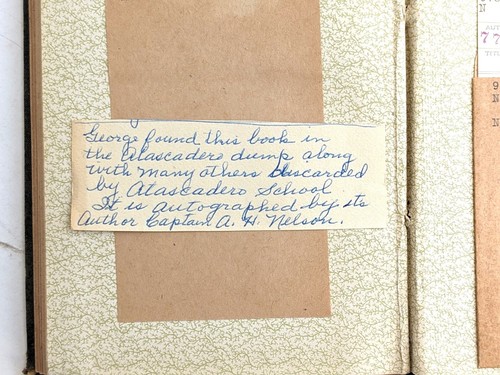 George found this book in
the Atascadero dump along
with many others discarded
by Atascadero School
It is autographed by its
Author Captain A. H. Nelson.
77
9
N
N